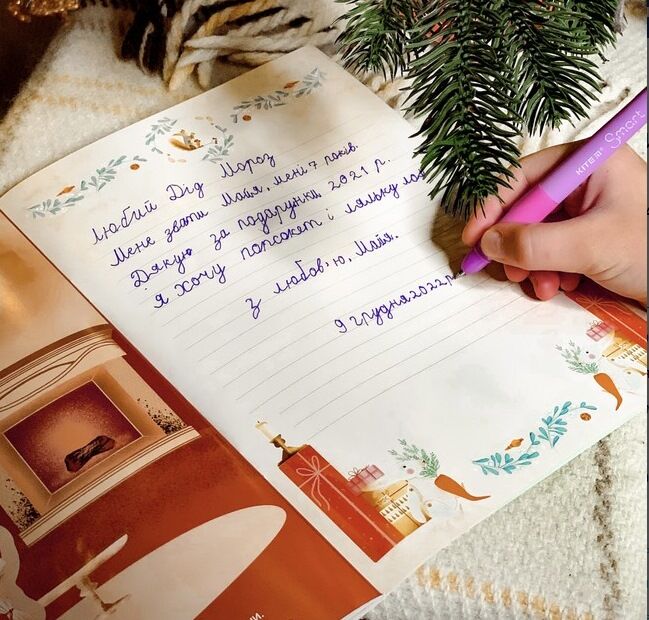 Любий Дід Мороз
Мене звати Майя, мені 7 років.
Дякую за подарунки 2021 р.
Я хочу попсокет і ляльку
З любов'ю, Майя.
9 грудня 2022 р.
KITE Smart